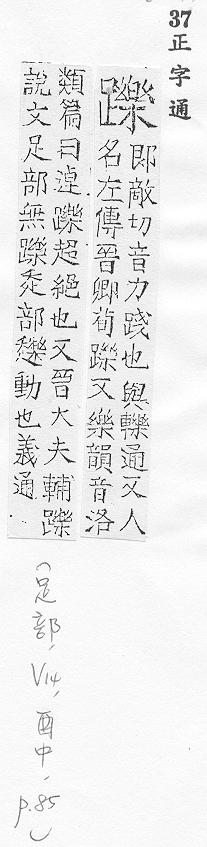 37 正字通
躒 郎敵切音力踐也與轢通又人
名左傳晉卿荀躒又樂韻音洛
類篇曰逴躒超絕也又晉大夫輔躒
說文足部無躒走部動也義通
(足部, V14, 酉中, p.85)